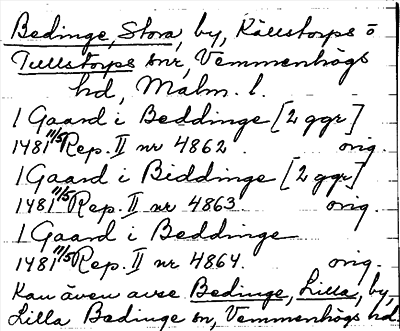 Bedinge, Stora, by, Källstorps o
Tullstorps snr, Vemmenhögs
hd, Malm. l.
1 Gaard i Beddinge [2 ggr]
1481 11/5 Rep. II nr 4862. orig.
1 Gaard i Biddinge [2 ggr]
1481 11/5 Rep. II nr 4863. orig.
1 Gaard i Beddinge
1481 11/5 Rep. II nr 4864. orig.
Kan även avse Bedinge, Lilla, by,
Lilla Bedinge sn, Vemmenhögs hd.